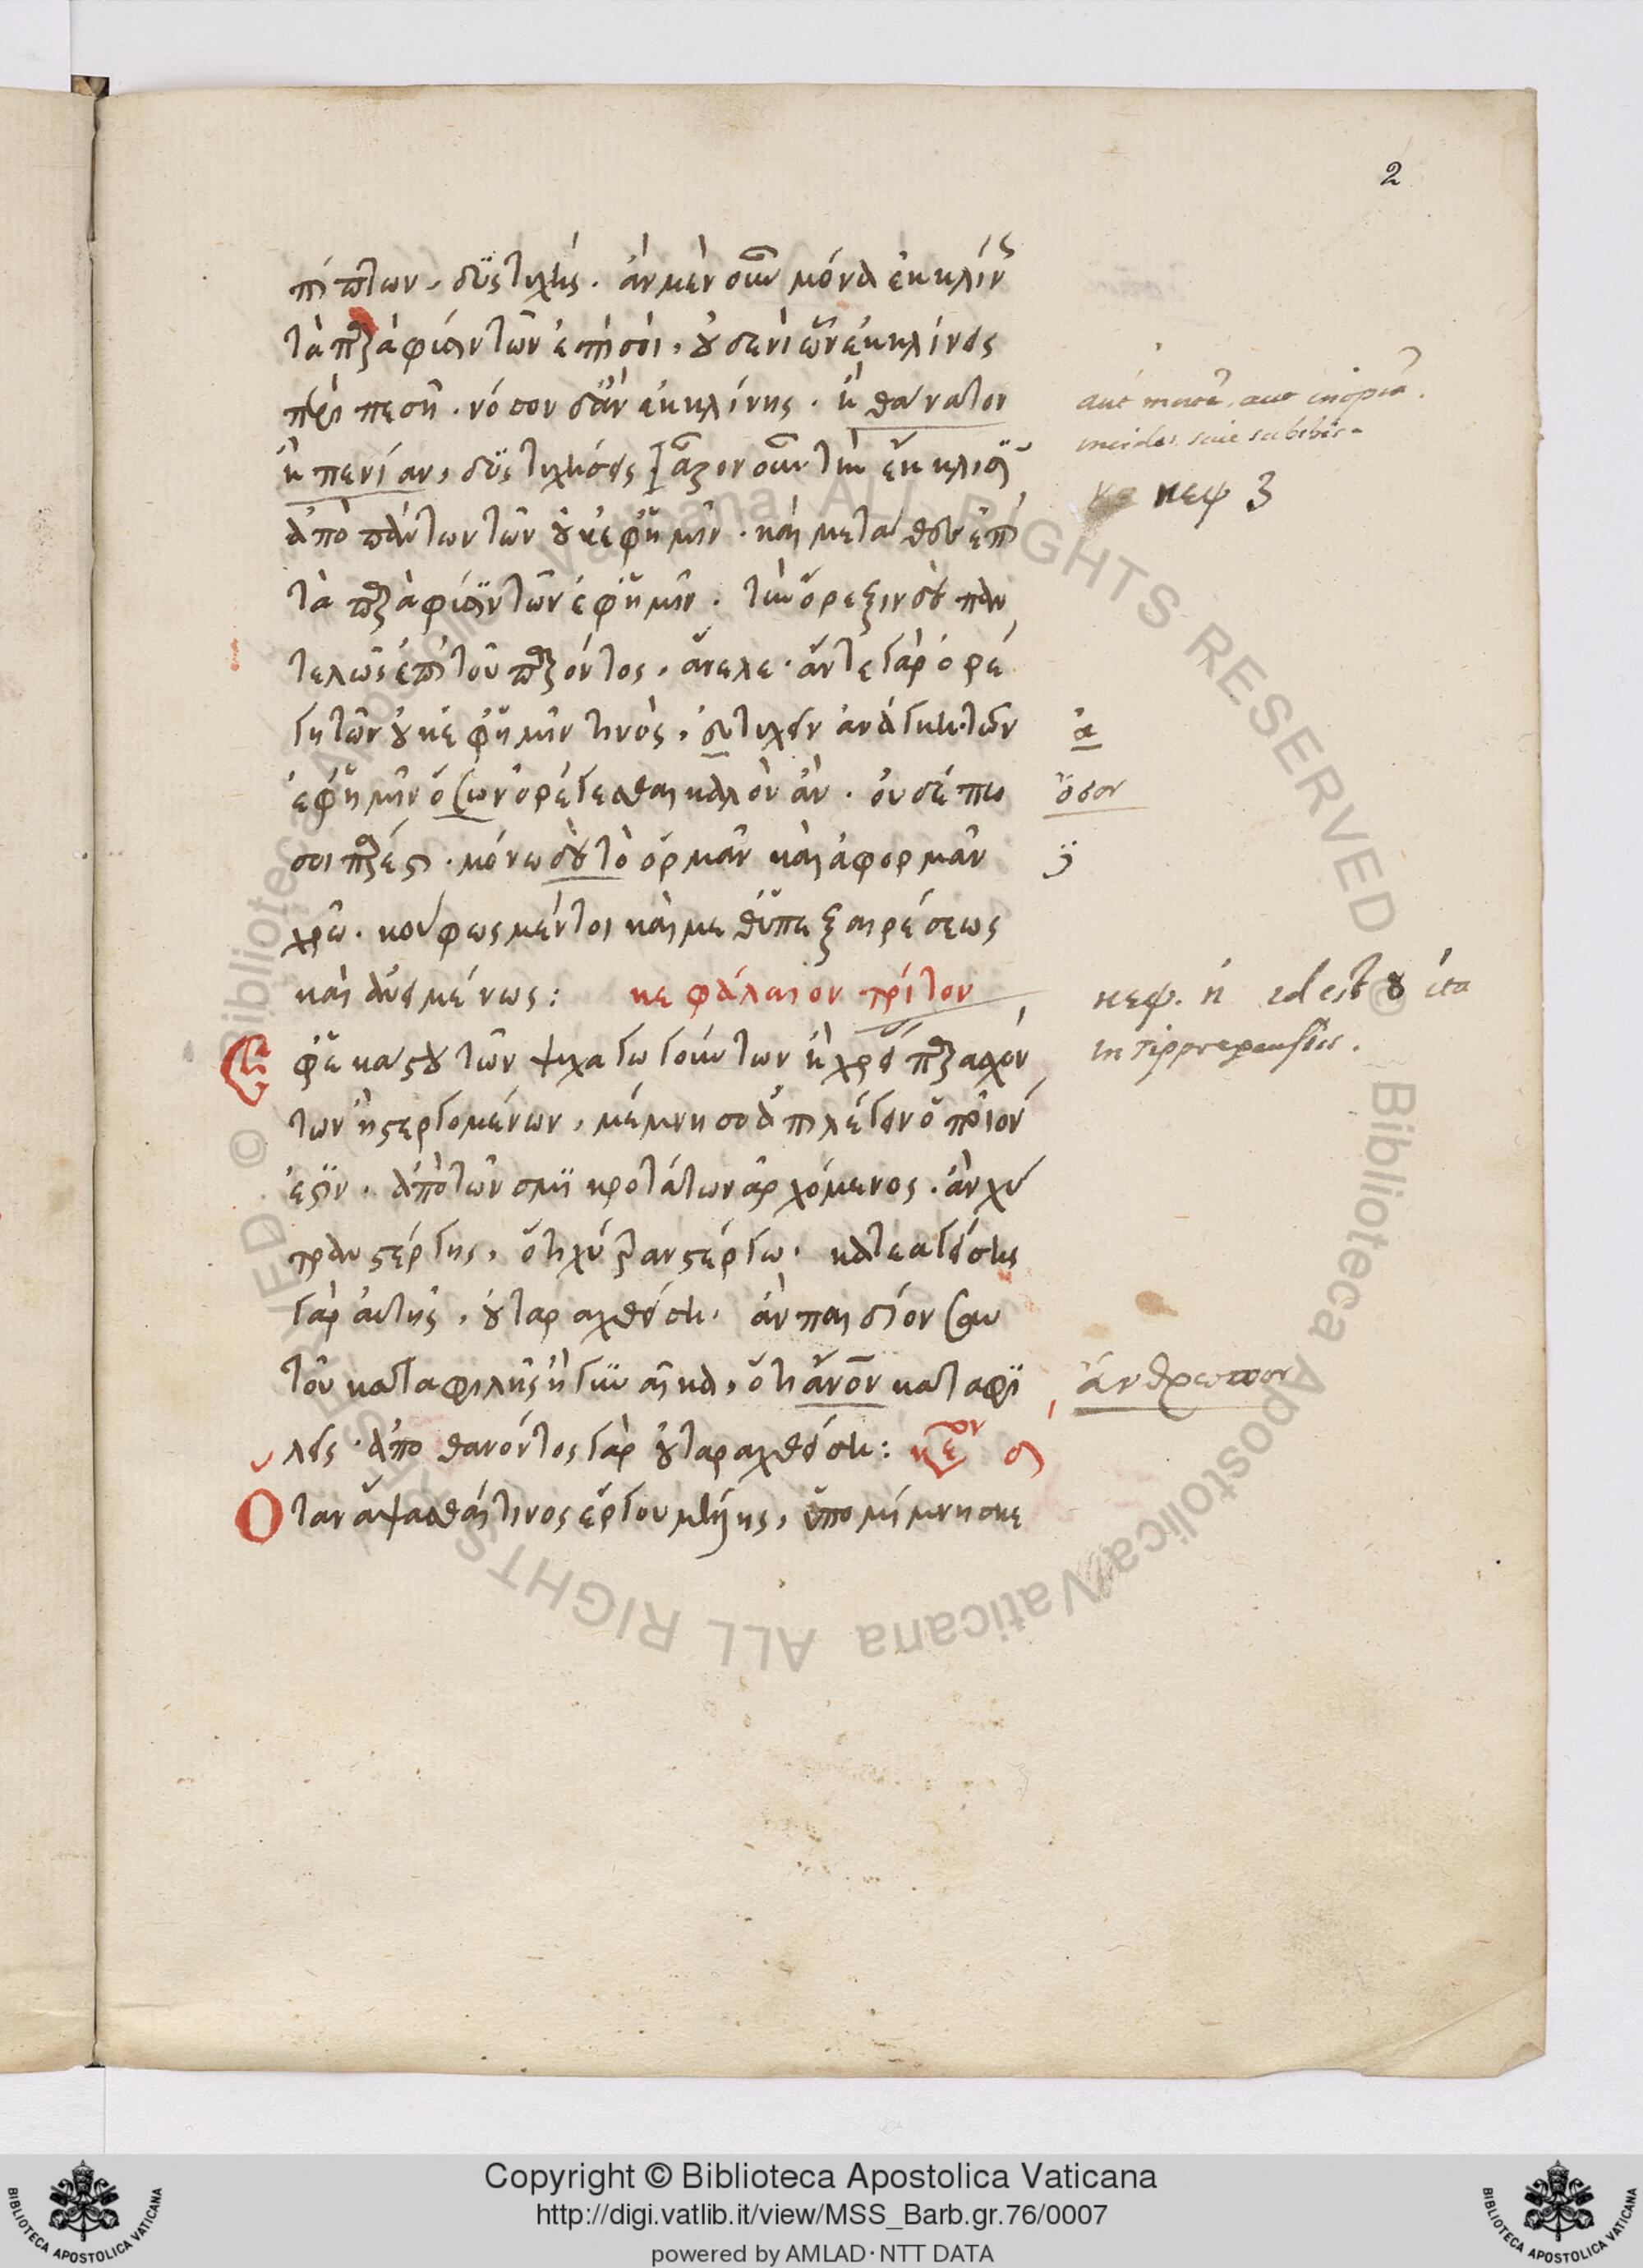 2
πίπτων, δυστυχής. ἂν μὲν οὖν μόνα ἐκκλίνῃς
τὰ παρὰ φύσιν τῶν ἐπὶ σοί, οὐδενὶ ὧν ἐκκλίνεις
περιπεσῇ. νόσον δ' ἂν ἐκκλίνῃς. ἢ θάνατον
ἢ πενίαν, δυστυχήσεις [ἆρον οὖν τὴν ἔκκλισιν
ἀπὸ πάντων τῶν οὐκ ἐφ' ἡμῖν. καὶ μετάθες ἐπὶ
τὰ παρὰ φύσιν τῶν ἐφ' ἡμῖν. τὴν ὄρεξιν δὲ παν
τελῶς ἐπὶ τοῦ παρόντος, ἄνελε. ἄν τε γὰρ ὀρέ
γῃ τῶν οὐκ ἐφ' ἡμῖν τινὸς, ἀτυχεῖν ἀνάγκη. τῶν
ἐφ' ἡμῖν ὅσων ὀρέγεσθαι καλὸν ἂν. οὐδέπω
σοι πάρεστι. μόνω δὲ τὸ ὁρμᾶν καὶ ἀφορμᾶν
χρῶ. κούφως μέντοι καὶ μεθ' ὑπεξαιρέσεως
καὶ ἀνειμένως: κεφάλαιον τρίτον
Ἐφ' ἑκάστου τῶν ψυχαγωγούντων ἢ χρείαν παρεχόν
των ἢ στεργομένων, μέμνησο ἐπιλέγειν ὁποῖόν
ἐστιν. ἀπὸ τῶν σμικροτάτων ἀρχόμενος. ἂν χύ
τραν στέργῃς, ὅτι χύτραν στέργω. κατεαγείσης
γὰρ αὐτῆς, οὐ ταραχθήσῃ. ἂν παιδίον σαυ
τοῦ καταφιλῇς ἢ γυναῖκα, ὅτι ἄνον καταφι
λεῖς. ἀποθανόντος γὰρ οὐ ταραχθήσῃ: κεφ
Ὅταν ἅψασθαί τινος ἔργου μέλλῃς, ὑπομίμνησκε
aut morte, aut inopia.
incides, sive subibis
κεφ 3
ὅσον
κεφ. η id est 8 ita
ἄνθρωπον
Copyright © Biblioteca Apostolica Vaticana
http://digi.vatlib.it/view/MSS_Barb.gr.76/0007
powered by AMLAD·NTT DATA
BIBLIOTECA APOSTOLICA VATICANA
BIBLIOTECA APOSTOLICA VATICANA
© Biblioteca Apostolica Vaticana ALL RIGHTS RESERVED
© Biblioteca Apostolica Vaticana ALL RIGHTS RESERVED